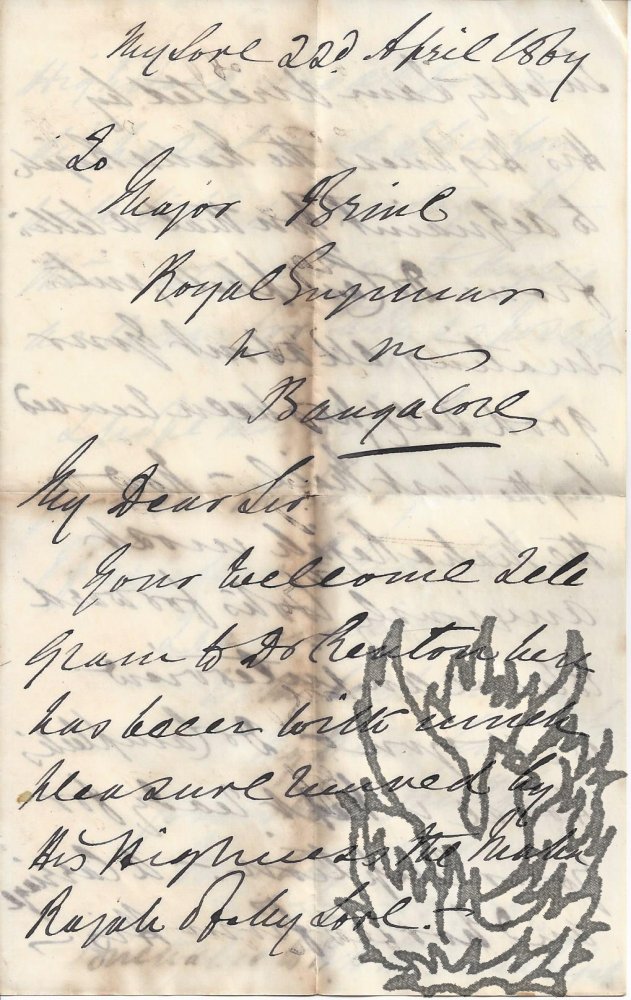 Mysore 22d April 1867
To
Major Brine
Royal Engineer
Bangalore
My Dear Sir
Your welcome Tele
gram to Dr here
has been with much
pleasure received by
His Highness the Maha
Rajah of Mysore. —